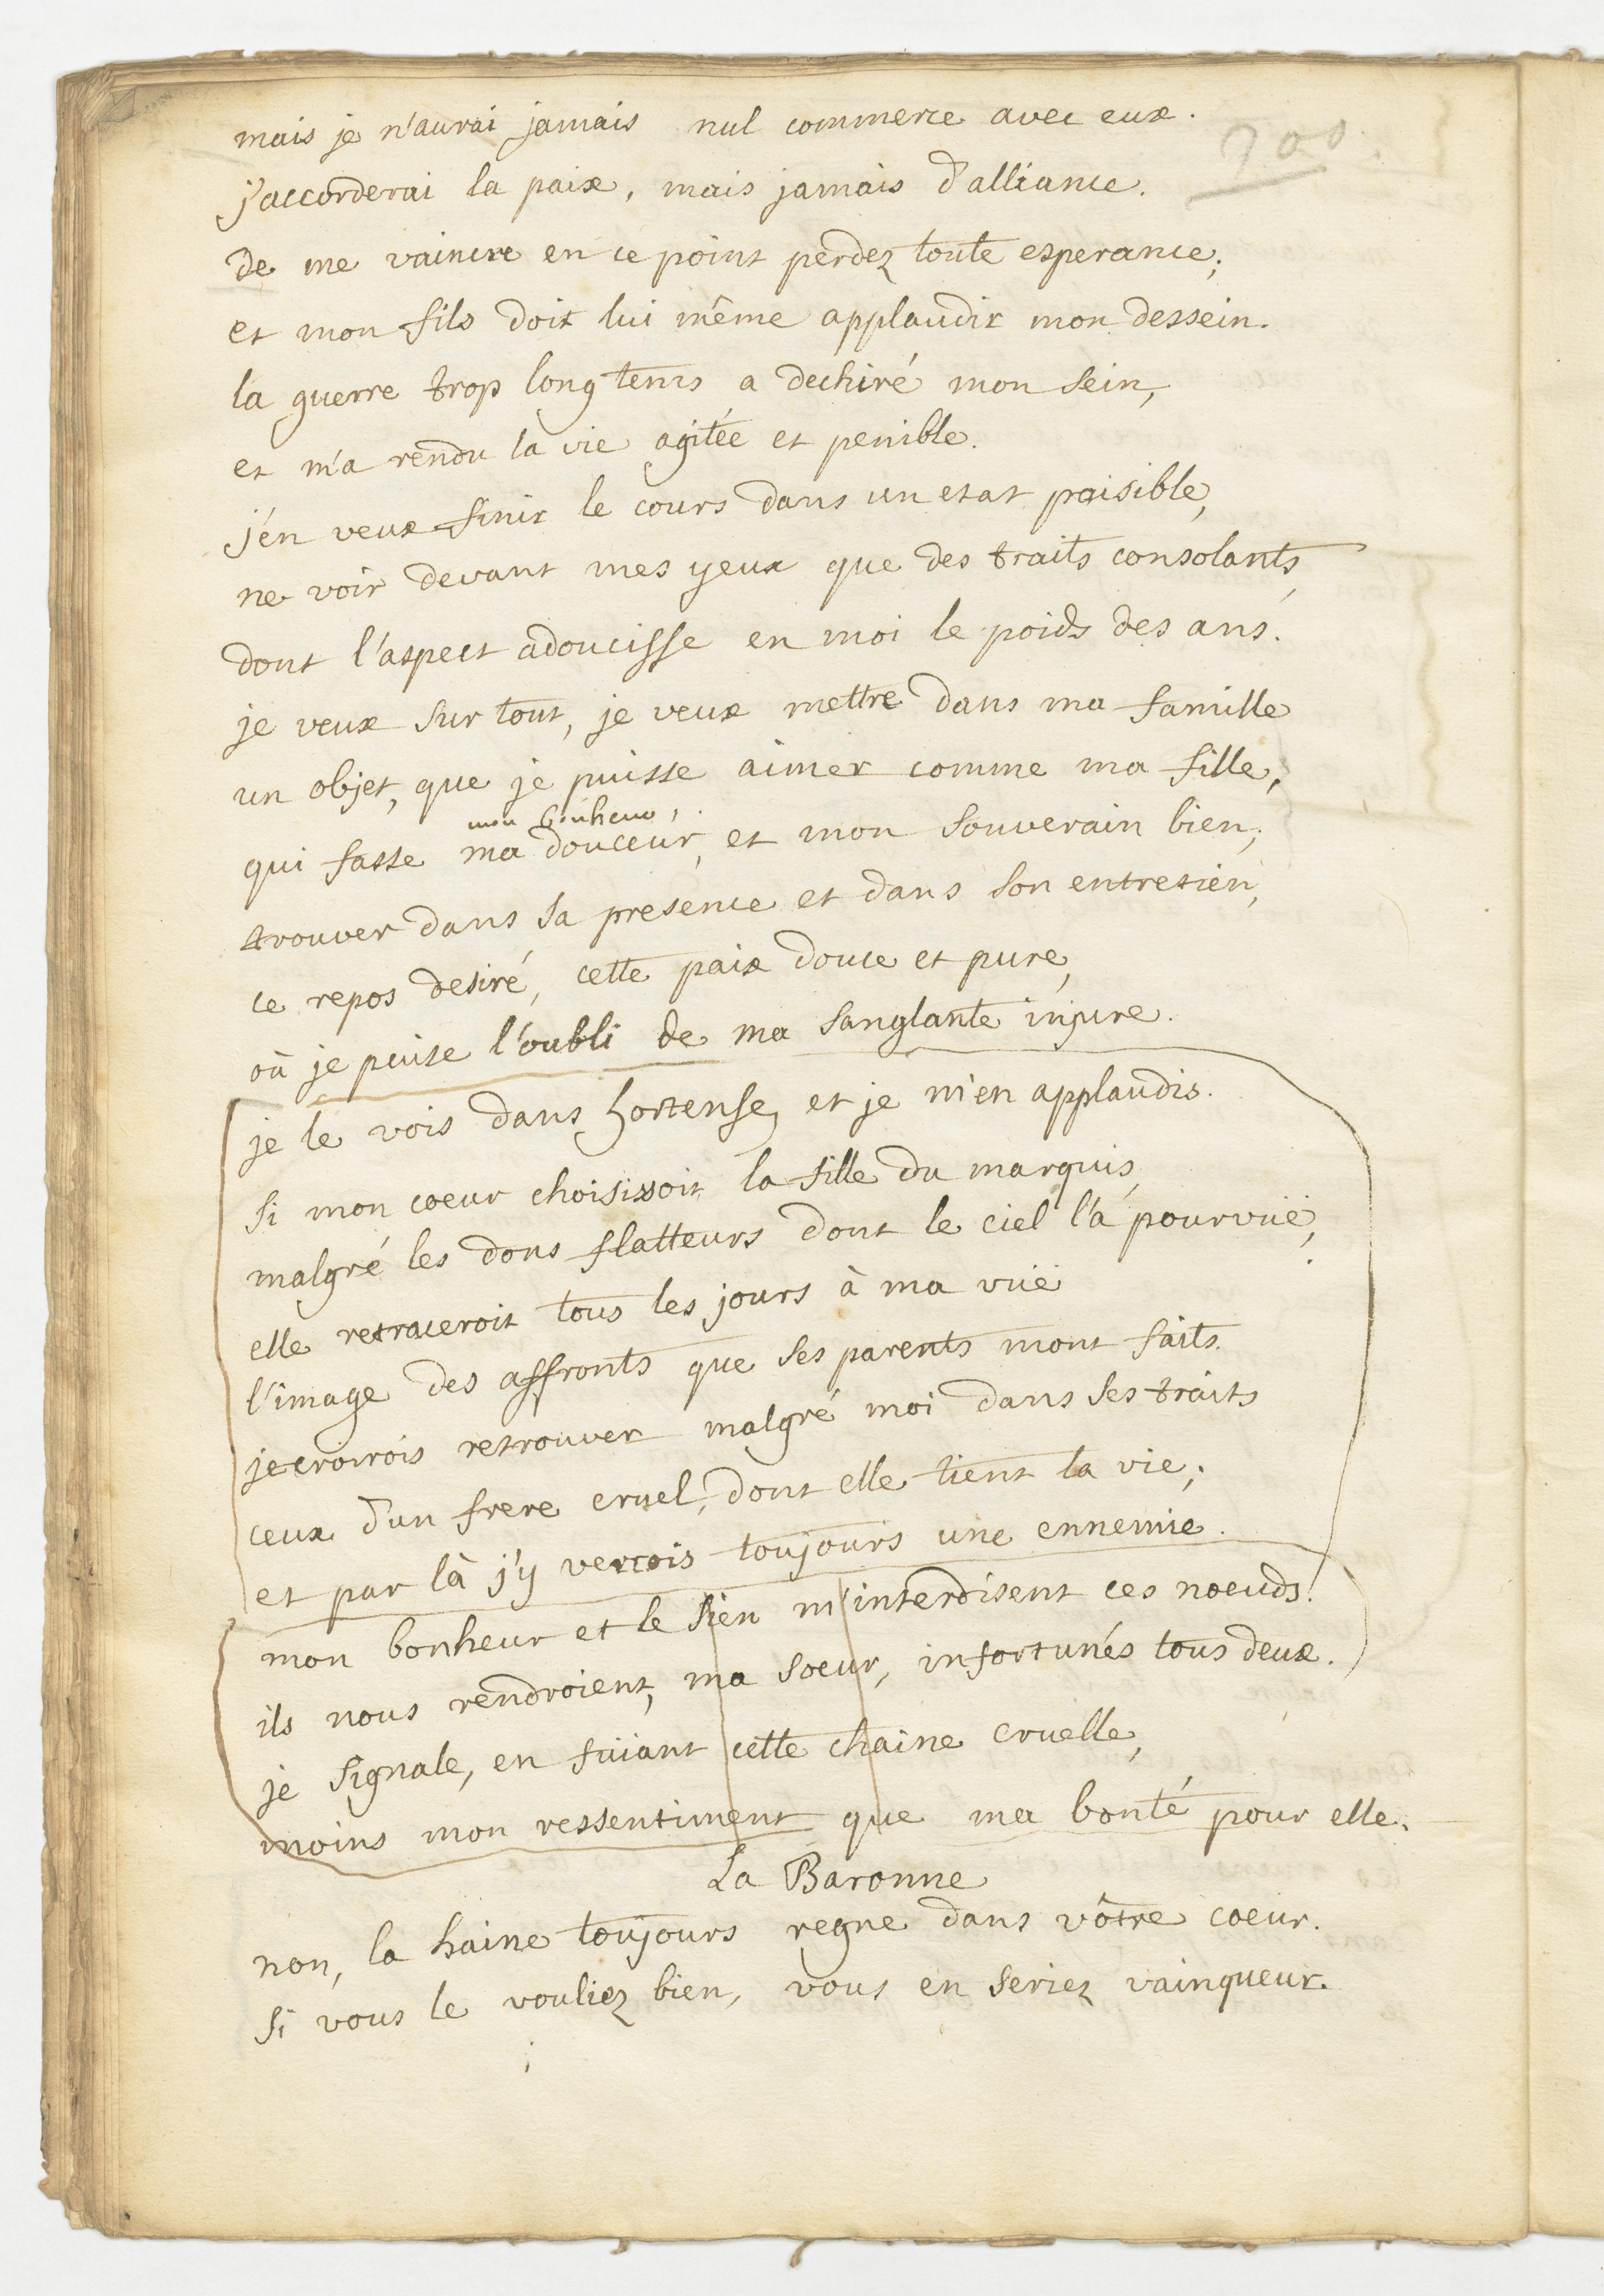 mais je n'aurai jamais nul commerce avec eux.
700
j'accorderai la paix, mais jamais d'alliance.
de me vaincre en ce point perdez toute esperance;
et mon fils doit lui même applaudir mon dessein.
la guerre trop long tems a dechiré mon sein,
et m'a rendu la vie agitée et penible.
j'en veux finir le cours dans un etat paisible,
ne voir devant mes yeux que des traits consolants,
dont l'aspect adoucisse en moi le poids des ans.
je veux sur tout, je veux mettre dans ma famille
un objet, que je puisse aimer comme ma fille,
mon bonheur,
qui fasse ma douceur, et mon souverain bien;
trouver dans sa presence et dans son entretien,
ce repos desiré, cette paix douce et pure,
où je puise l'oubli de ma sanglante injure.
je le vois dans hortense, et je m'en applaudis.
si mon coeur choisissoit la fille du marquis,
malgré les dons flatteurs dont le ciel l'a pourvüe,
elle retraceroit tous les jours à ma vüe
l'image des affronts que ses parents mont faits.
je croirois retrouver malgré moi dans ses traits
ceux d'un frere cruel, dont elle tient la vie;
et par là j'y verrois toujours une ennemie.
mon bonheur et le sien m'interdisent ces noeuds.
ils nous rendroient, ma soeur, infortunés tous deux.
je signale, en fuiant cette chaine cruelle,
moins mon ressentiment que ma bonté pour elle.
La Baronne
non, la haine toujours regne dans vôtre coeur.
si vous le vouliez bien, vous en seriez vainqueur.